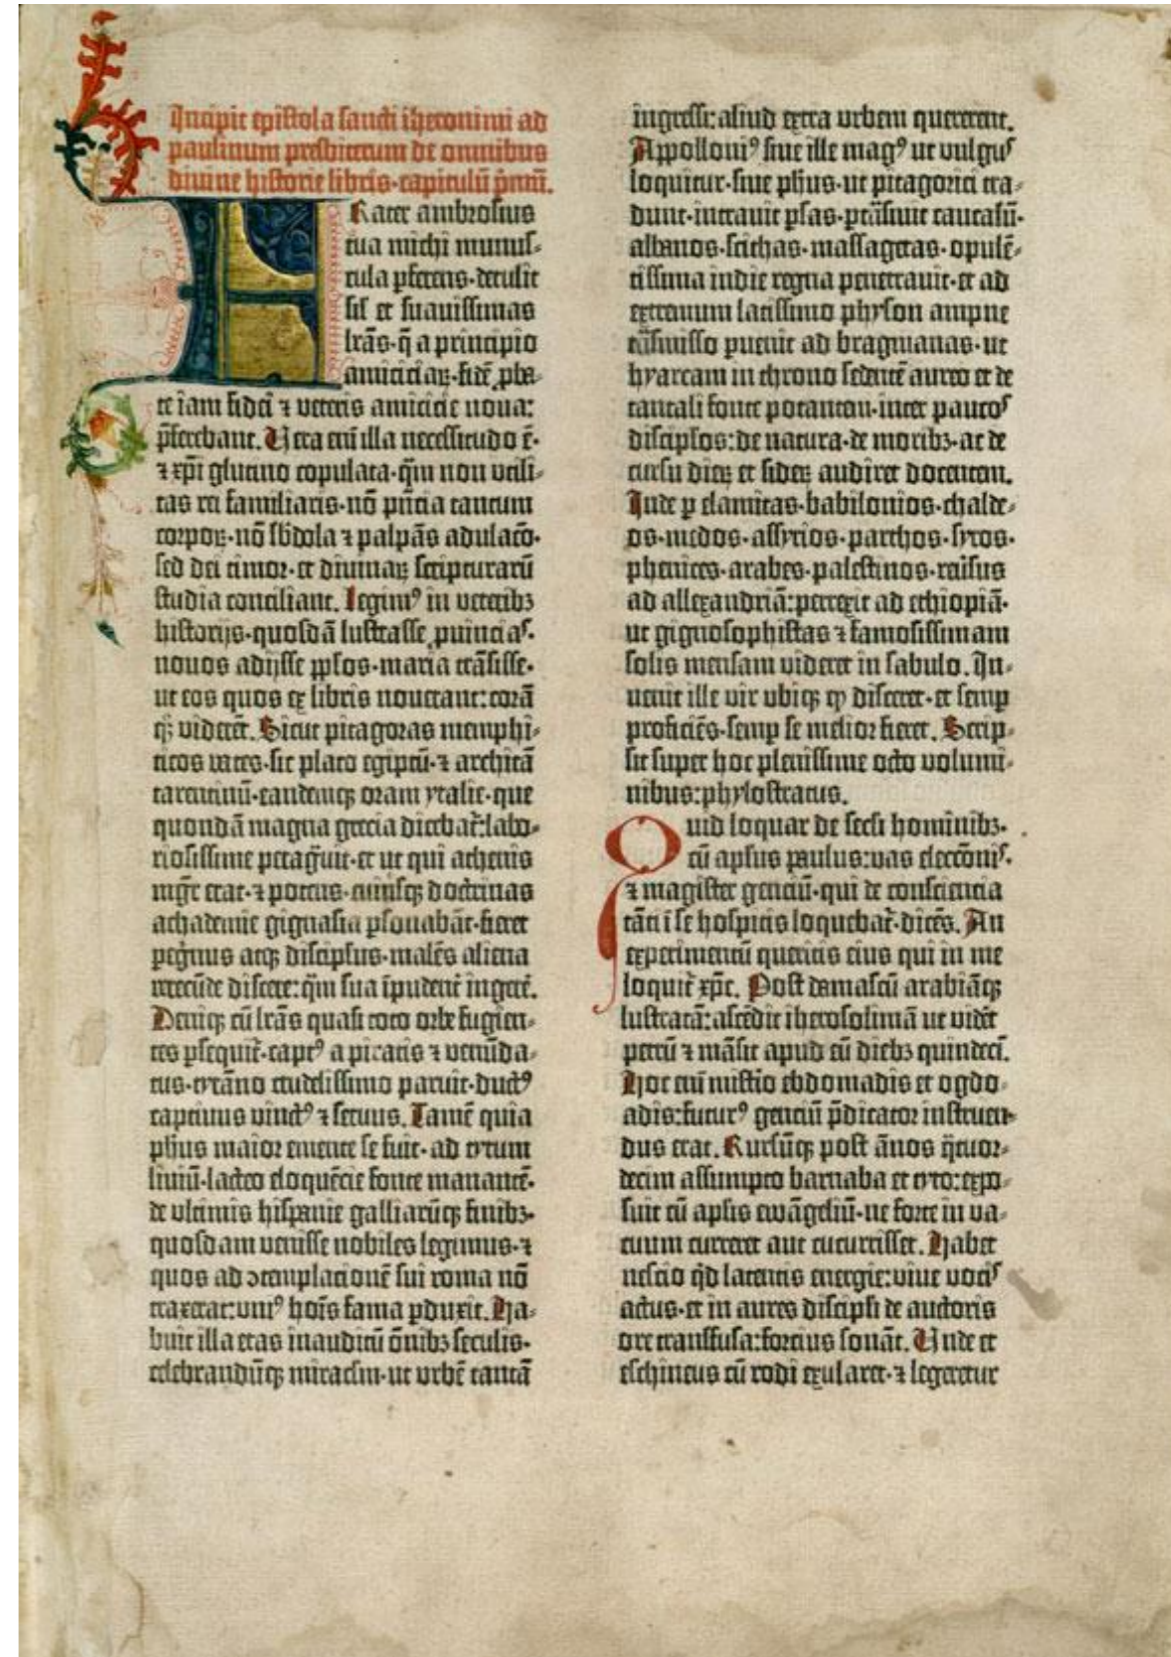 Incipit epistola sancti iheronimi ad
paulinum presbiterum de omnibus
divine historie libris·capitulū p̄mū.
Frater ambrosius
tua michi munus-
cula ꝑferens·detulit
sił et suavissimas
lrās·q̄ a principio
amiciciaꝝ·fidē ꝓba-
te iam fidei ⁊ veteris amicicie nova:
p̄ferebant. Uera em̄ illa necessitudo ē·
⁊ xp̄i glutino copulata·q̄m non utili-
tas rei familiaris·nō pn̄cia tantum
corpoꝝ·nō sb̄dola ⁊ palpās adulacō·
sed dei timor·et divinaꝝ scripturarū
studia conciliant. Legimꝰ in veteribꝫ
historijs·quosdā lustrasse ꝓvincias·
novos adijsse ppl̄os·maria trāsisse·
ut eos quos ex libris noverant: corā
qꝫ viderēt. Sicut pitagoras memphi-
ticos vates·sic plato egiptū·⁊ architā
tarentinū·eandemqꝫ oram ytalie·que
quondā magna grecia dicebat̄: labo-
riosissime peragͣvit·et ut qui athenis
mgr̄ erat·⁊ potens·cuiusqꝫ doctrinas
achademie gignasia ꝑsonabāt·fieret
ꝑegͥnus atqꝫ discipulus·malēs aliena
verecūde discere: q̄m sua īpudent̄ ingerē.
Deniqꝫ cū lrās quasi toto orbe fugien-
tes ꝑsequit̄·captꝰ a piratis ⁊ venūda-
tus·tyrāno crudelissimo paruit·ductꝰ
captivus vinctꝰ ⁊ servus. Tamē quia
ph̄us maior emente se fuit·ad tytum
liviū·lacteo eloquēcie fonte manantē·
de ultimis hispanie galliarūqꝫ finibꝫ·
quosdam venisse nobiles legimus·⁊
quos ad ꝯtemplacionē sui roma nō
traxerat: uniꝰ hoīs fama ꝑduxit. Ha-
buit illa etas inauditū ōnibꝫ seculis·
celebrandūqꝫ miraclm·ut urbē tantā
ingressi: aliud extra urbem quererent.
Appolloniꝰ sive ille magꝰ ut vulgus
loquitur·sive ph̄us·ut pitagorici tra-
dunt·intravit ꝑsas·ꝑtrāsivit caucasū·
albanos·scithas·massagetas·opulē-
tissima indie regna penetravit·et ad
extremum latissimo physon ampne
trāsmisso ꝑvenit ad bragmanas·ut
hyarcam in throno sedentē aureo et de
tantali fonte potantem·inter paucos
discipl̄os: de natura·de moribꝫ·ac de
cursu dieꝝ et sideꝝ audiret docentem.
Inde ꝑ elamitas·babilonios·chalde-
os·medos·assyrios·parthos·syros·
phenices·arabes·palestinos·reversus
ad allexandriā: perrexit ad ethiopiā·
ut gignosophistas ⁊ famosissimam
solis mensam videret in sabulo. In-
venit ille vir ubiqꝫ qͦ disceret·et semꝑ
proficiēs·semꝑ se melior fieret. Scrip-
sit super hoc plenissime octo volumi-
nibus: phylostratus.
Quid loquar de secl̄i hominibꝫ·
cū apl̄us paulus: vas elecciōis·
⁊ magister genciū·qui de consciencia
tāti ī se hospitis loquebat̄·dicēs. An
experimentū queritis eius qui in me
loquit̄ xp̄c. Post damascū arabiāqꝫ
lustratā: ascēdit iherosolimā ut videt̄
petrū ⁊ māsit apud eū diebꝫ quindecī.
Hoc em̄ mistīo ebdomadis et ogdo-
adis: futurꝰ genciū p̄dicator instruen-
dus erat. Rursūqꝫ post ānos q̄tuor-
decim assumpto barnaba et tyto: expo-
suit cū apl̄is ewāgeliū·ne forte in va-
cuum curreret aut cucurrisset. Habet
nescio qͥd latentis energie: vive vocis
actus·et in aures discipl̄i de auctoris
ore transfusa: forcius sonāt. Unde et
eschineus cū rodi exularet·⁊ legeretur